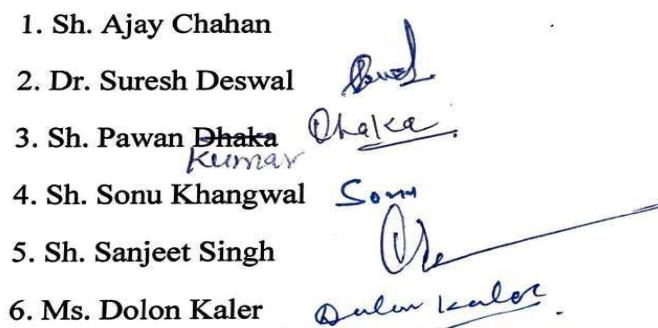 1. Sh. Ajay Chahan
2. Dr. Suresh Deswal
3. Sh. Pawan Dhaka Dhaka
Kumar
4. Sh. Sonu Khangwal Sonu
5. Sh. Sanjeet Singh
6. Ms. Dolon Kaler Dolon Kaler